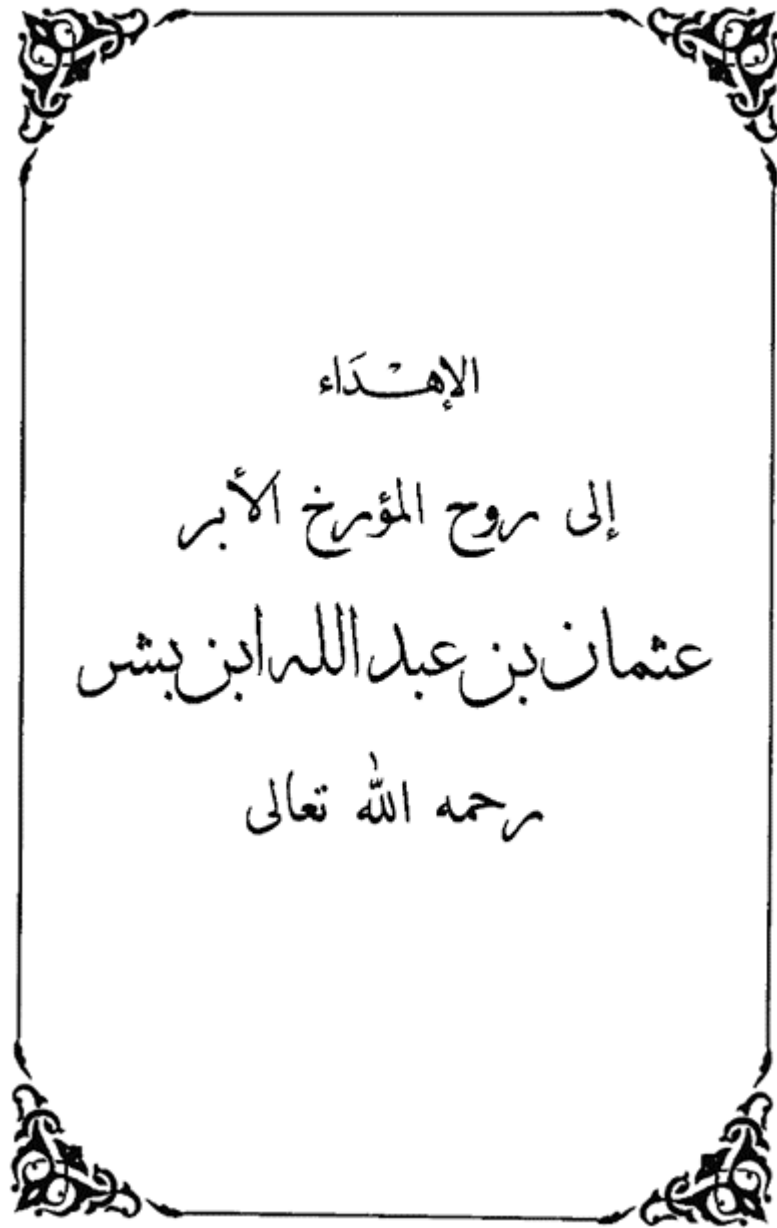 الإهْـدَاء
إلى روح المؤرخ الأبر
عثمان بن عبد الله ابن بشر
رحمه الله تعالى